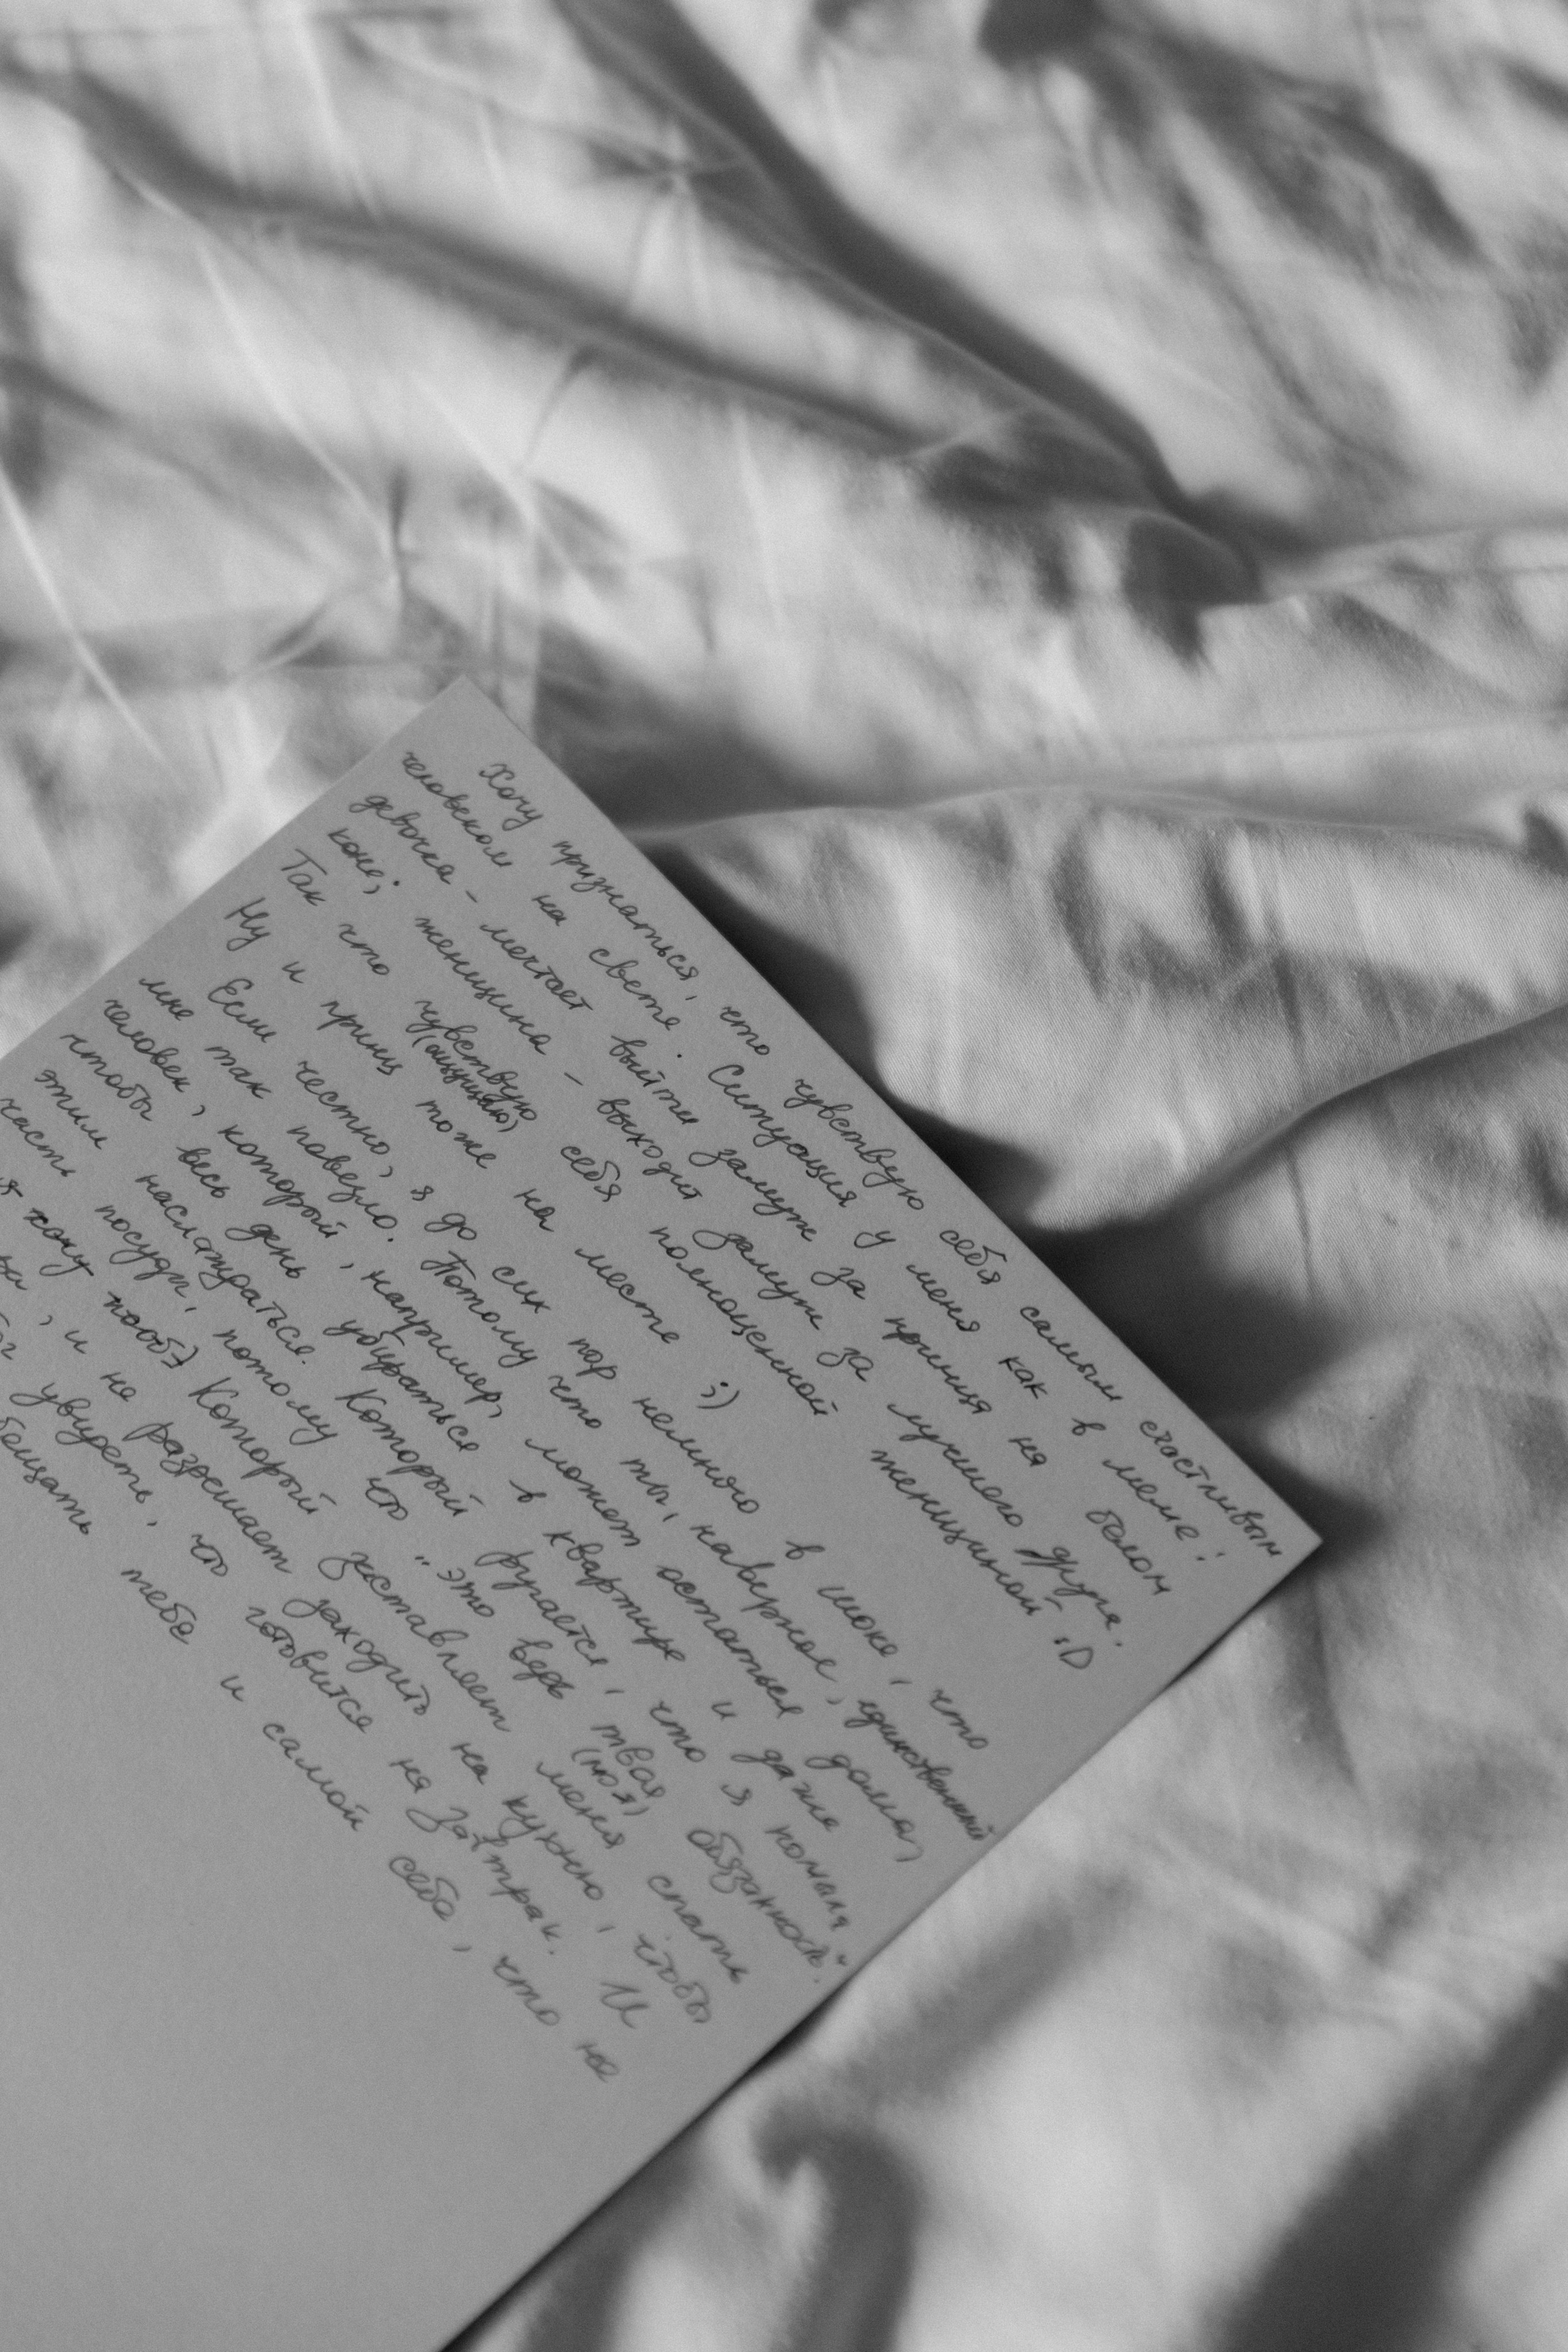 Хочу признаться, что чувствую себя самым счастливым
человеком на свете. Ситуация у меня как в меме:
девочка - мечтает выйти замуж за принца на белом
коне; женщина - выходит замуж за лучшего друга.
Так что чувствую себя полноценной женщиной :D
(ощущаю)
Ну и принц тоже на месте ;)
Если честно, я до сих пор немного в шоке, что
мне так повезло. Потому что ты, наверное, единственный
человек, который, например, может остаться дома,
чтобы весь день убираться в квартире и даже
этим наслаждаться. Который ругается, что я помыла
часть посуды, потому что "это ведь твоя обязанность".
(но я)
хочу Который заставляет меня спать
, и не разрешает заходить на кухню, чтобы
увидеть, что готовится на завтрак. И
тебе и самой себе, что не